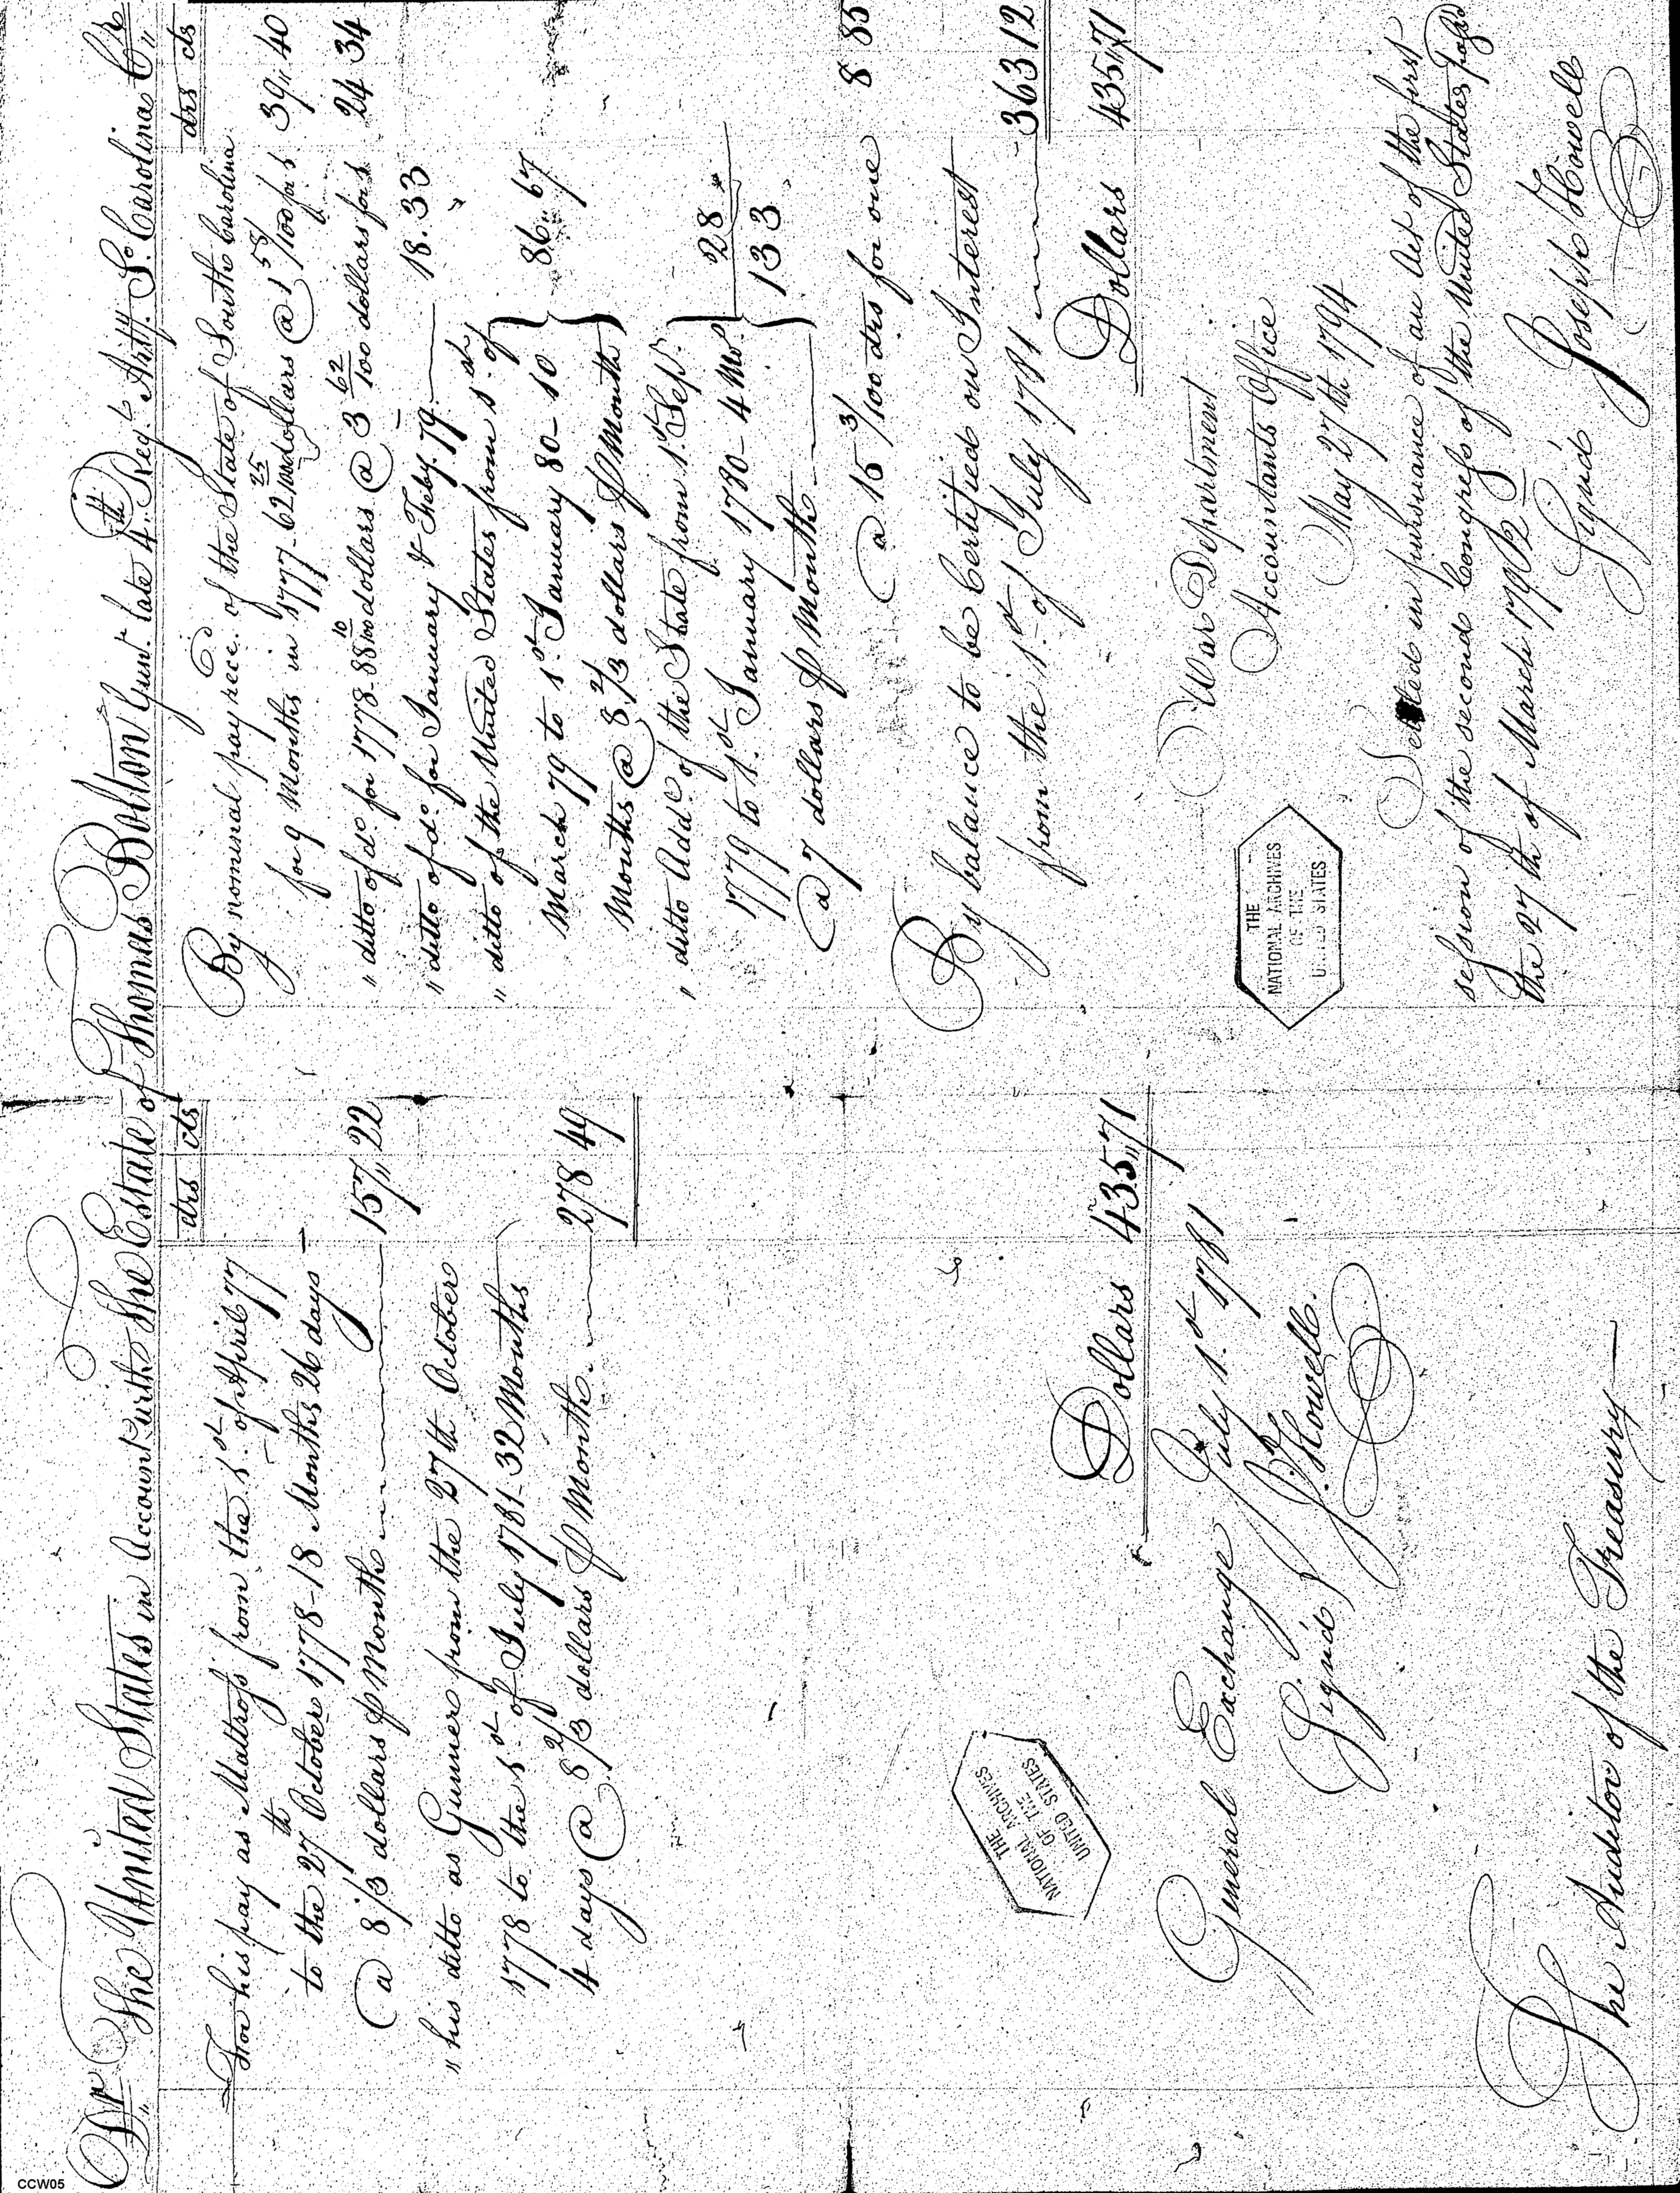 Dr The United States in Account with the Estate of Thomas Bolton Gunr. late 4th Regt. Arty. So. Carolina Cr
drs cts
For his pay as Mattross from the 1st. of April 77
to the 27th October 1778 - 18 Months 26 days
@ 8 1/3 dollars ⅌ Month 157,, 22
" his ditto as Gunner from the 27th October
1778 to the 1st. of July 1781 - 32 Months
4 days @ 8 2/3 dollars ⅌ Month 278 49
Dollars 435,,71
General Exchange July 1st 1781
Signd J. Howell.
The Auditor of the Treasury
drs cts
By nominal pay rece. of the State of South Carolina
for 9 Months in 1777 - 62 25/100 dollars @ 1 58/100 for 1. 39,, 40
" ditto of do for 1778 - 88 10/100 dollars @ 3 62/100 dollars for 1 24 34
" ditto of do. for January & Feby. 79. 18. 33
" ditto of the United States from 1st. of
March 79 to 1st. January 80 - 10
Months @ 8 2/3 dollars ⅌ Month 86,, 67
" ditto Add. of the State from 1st. Sep.
1779 to 1st. January 1780 - 4 Mos. 28
@ 7 dollars ⅌ Month 133
@ 15 3/100 drs for one 8 85
By balance to be Certified on Interest
from the 1st. of July 1781 363 12
Dollars 435,,71
War Department
Accountants Office
May 27th 1794
Settled in pursuance of an Act of the first
session of the second Congress of the United States passed
the 27th of March 1792
Signd Joseph Howell
THE
NATIONAL ARCHIVES
OF THE
UNITED STATES
THE
NATIONAL ARCHIVES
OF THE
UNITED STATES
CCW05